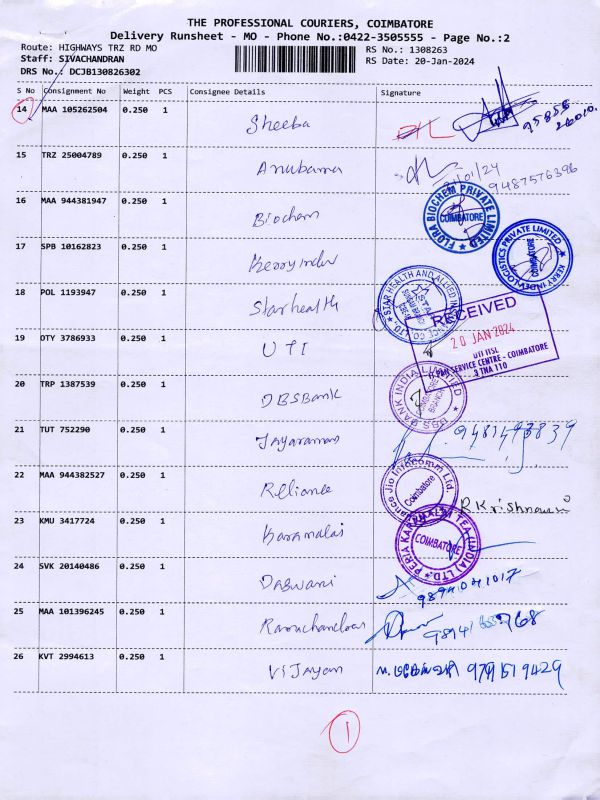 THE PROFESSIONAL COURIERS, COIMBATORE
Delivery Runsheet - MO - Phone No.:0422-3505555 - Page No.:2
Route: HIGHWAYS TRZ RD MO RS No.: 1308263
Staff: SIVACHANDRAN RS Date: 20-Jan-2024
DRS No.: DCJB130826302
S No Consignment No Weight PCS Consignee Details Signature
14 MAA 105262504 0.250 1 Sheeba
15 TRZ 25004789 0.250 1 Anubama 9487576396
16 MAA 944381947 0.250 1 Biochem FLORA BIOCHEM PRIVATE LIMITED COIMBATORE
17 SPB 10162823 0.250 1 Kerry indev KERRY INDEV LOGISTICS PRIVATE LIMITED COIMBATORE
18 POL 1193947 0.250 1 Starhealth STAR HEALTH AND ALLIED
RECEIVED
20 JAN 2024
UTI ITSL
PAN SERVICE CENTRE - COIMBATORE
3 TNA 110
19 OTY 3786933 0.250 1 UTI
20 TRP 1387539 0.250 1 DBSBank DBS BANK INDIA LIMITED COIMBATORE BRANCH
21 TUT 752290 0.250 1 Jayaraman
22 MAA 944382527 0.250 1 Reliance Reliance Jio Infocomm Ltd. Coimbatore R.Krishnaveni
23 KMU 3417724 0.250 1 Karamalai PERIA KARAMALAI TEA (INDIA) LTD. COIMBATORE
24 SVK 20140486 0.250 1 Daswani 9894041017
25 MAA 101396245 0.250 1 Ramachandran
26 KVT 2994613 0.250 1 Vijayan 9791519429
1